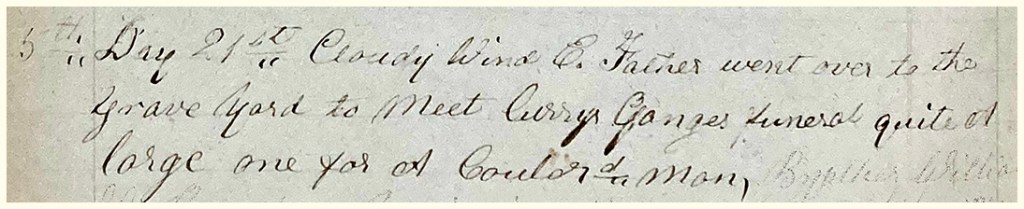 5th Day 21st Cloudy Wind E. Father went over to the
Grave Yard to Meet Currys Ganges funeral quite A
large one for A Couler'd Man,